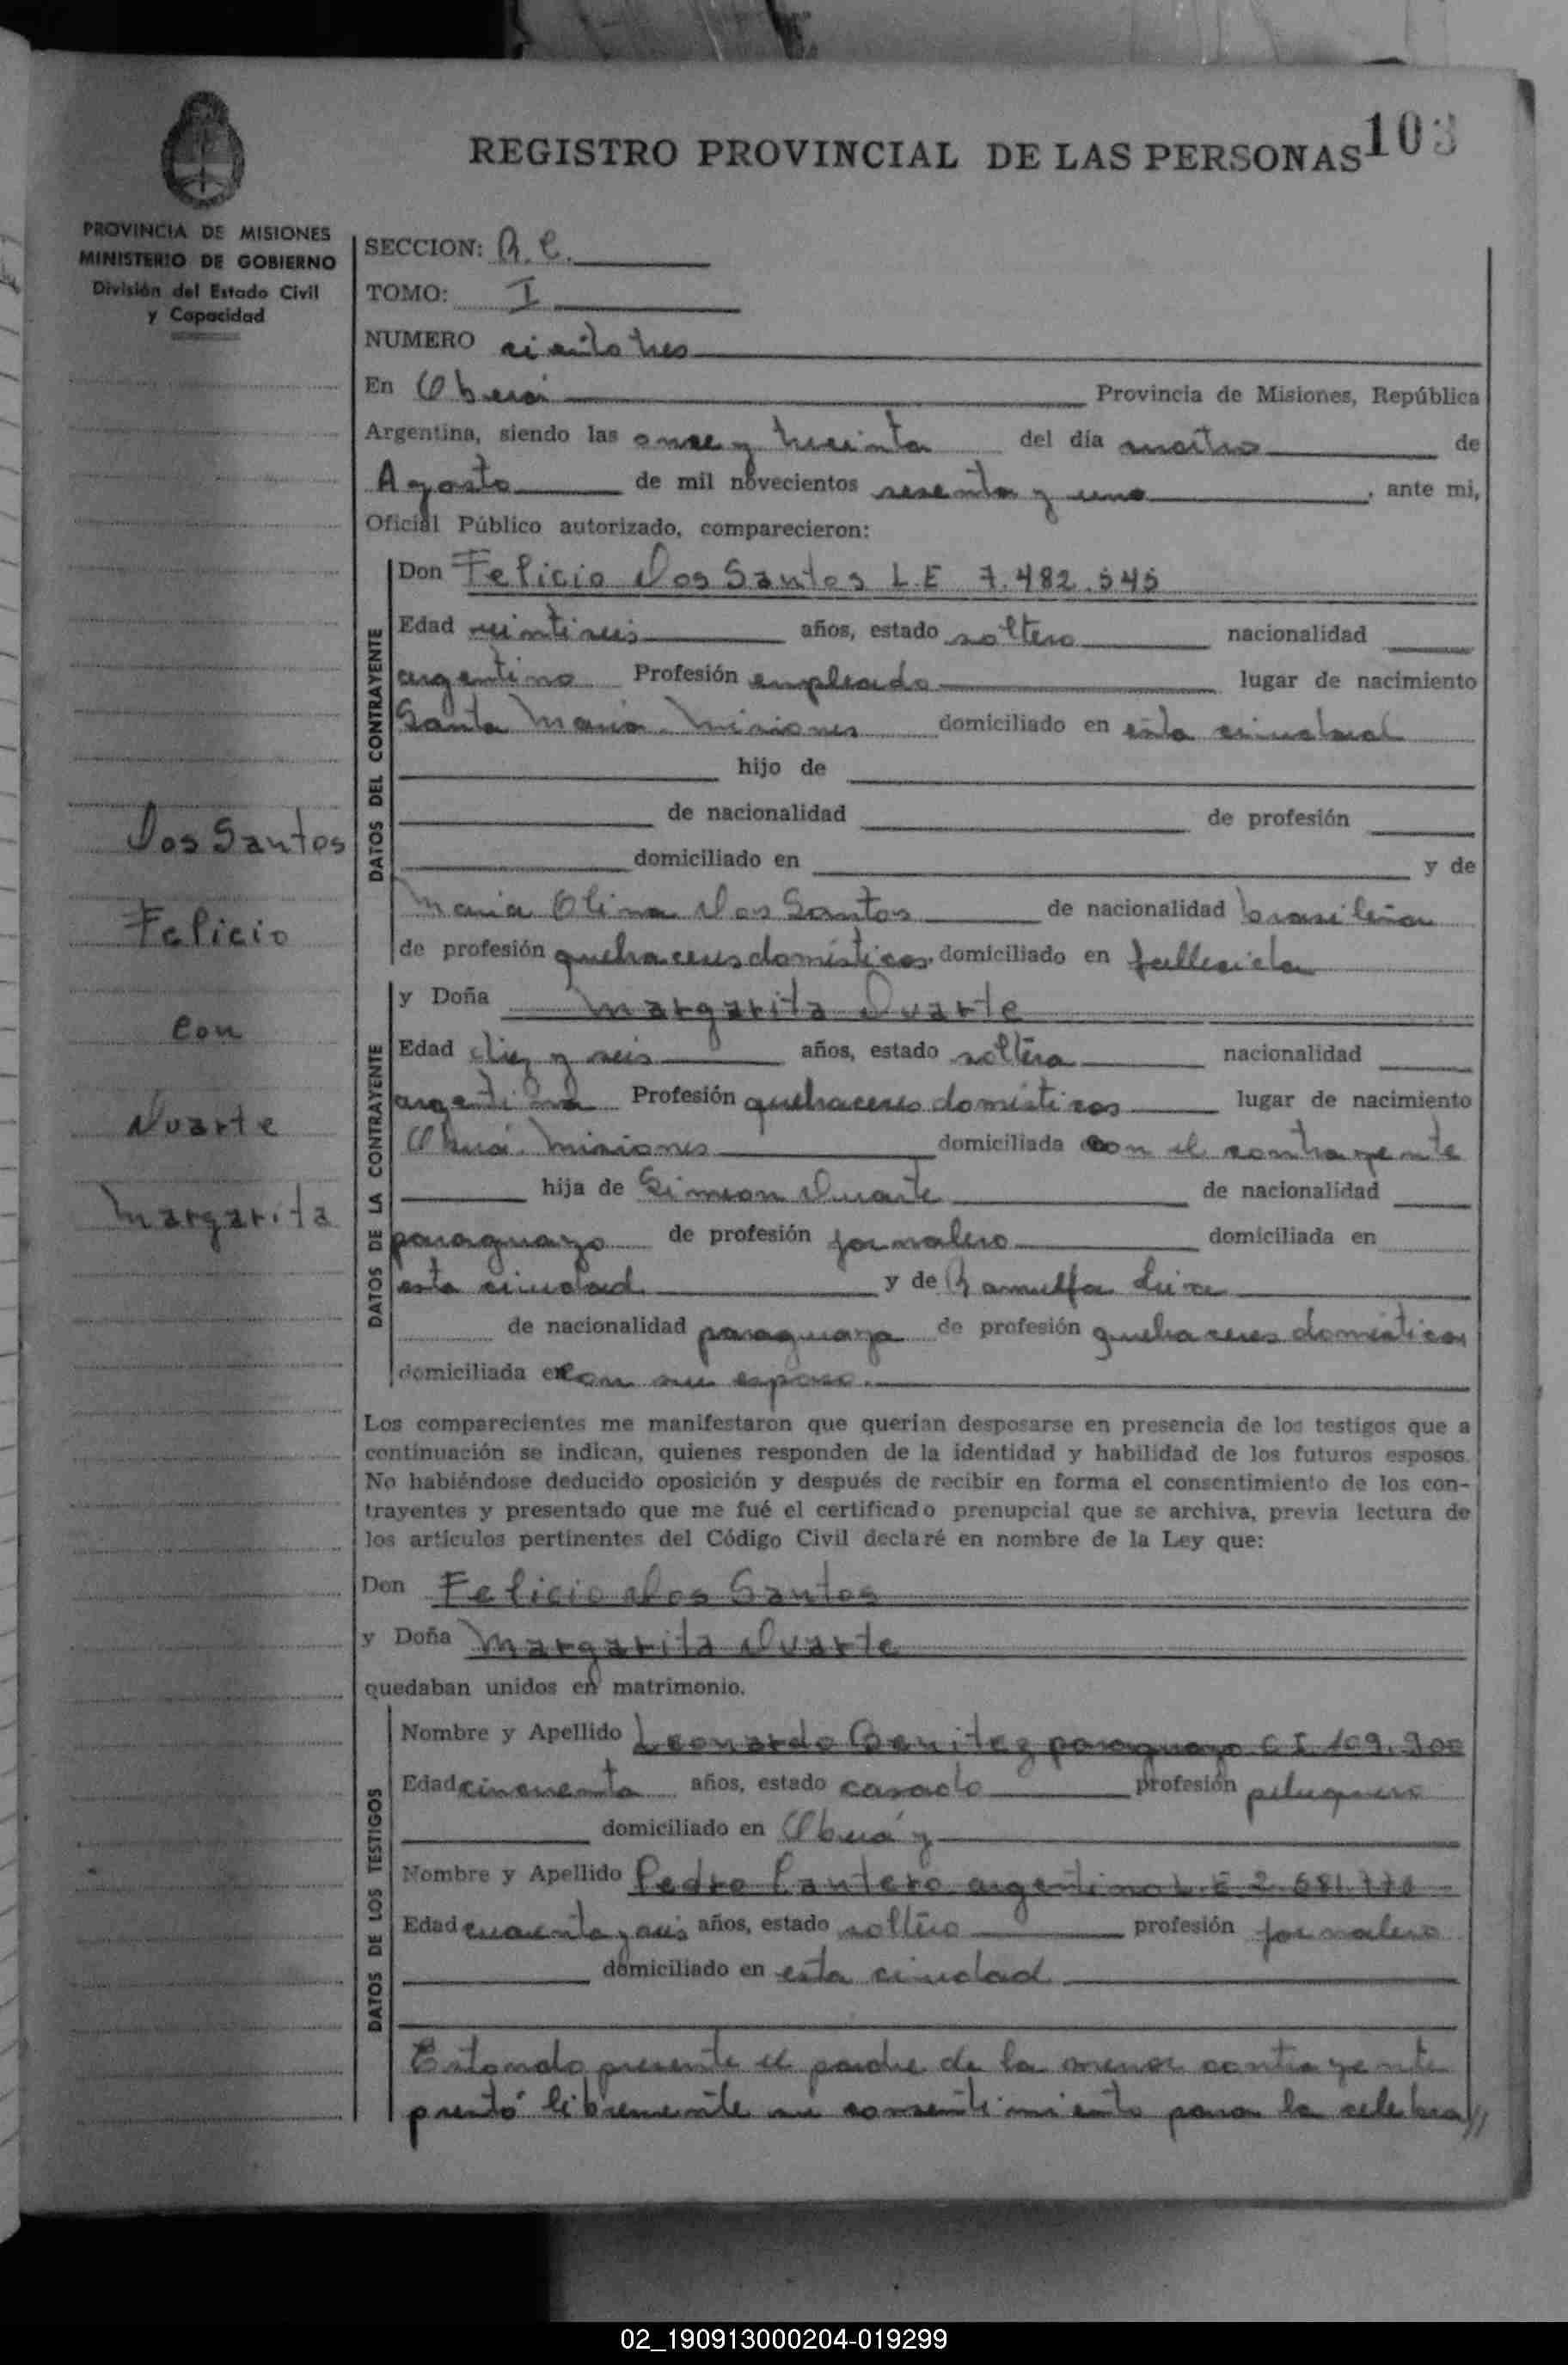 REGISTRO PROVINCIAL DE LAS PERSONAS 103
PROVINCIA DE MISIONES
MINISTERIO DE GOBIERNO
División del Estado Civil
y Capacidad
SECCION: R. C.
TOMO: I
NUMERO ciento tres
En Oberá Provincia de Misiones, República
Argentina, siendo las once y treinta del día cuatro de
Agosto de mil novecientos sesenta y uno, ante mi,
Oficial Público autorizado, comparecieron:
DATOS DEL CONTRAYENTE
Don Felicio Dos Santos L.E 7.482.545
Edad veintiseis años, estado soltero nacionalidad
argentino Profesión empleado lugar de nacimiento
Santa Maria. Misiones domiciliado en esta ciudad
hijo de
de nacionalidad de profesión
domiciliado en y de
Maria Olina Dos Santos de nacionalidad brasileña
de profesión quehaceres domésticos. domiciliado en fallecida
DATOS DE LA CONTRAYENTE
y Doña Margarita Duarte
Edad diez y seis años, estado soltera nacionalidad
argentina Profesión quehaceres domésticos lugar de nacimiento
Oberá. Misiones domiciliada con el contrayente
hija de Simeon Duarte de nacionalidad
paraguayo de profesión jornalero domiciliada en
esta ciudad y de
de nacionalidad paraguaya de profesión quehaceres domésticos
domiciliada en con su esposo.
Los comparecientes me manifestaron que querían desposarse en presencia de los testigos que a
continuación se indican, quienes responden de la identidad y habilidad de los futuros esposos.
No habiéndose deducido oposición y después de recibir en forma el consentimiento de los con-
trayentes y presentado que me fué el certificado prenupcial que se archiva, previa lectura de
los artículos pertinentes del Código Civil declaré en nombre de la Ley que:
Don Felicio Dos Santos
y Doña Margarita Duarte
quedaban unidos en matrimonio.
DATOS DE LOS TESTIGOS
Nombre y Apellido Leonardo Benitez paraguayo C I 109.900
Edad cincuenta años, estado casado profesión peluquero
domiciliado en Oberá y
Nombre y Apellido Pedro Cantero argentino L E 2.681.770
Edad cuarenta y seis años, estado soltero profesión jornalero
domiciliado en esta ciudad
Estando presente el padre de la menor contrayente
prestó libremente su consentimiento para la celebra//
Dos Santos
Felicio
con
Duarte
Margarita
02_190913000204-019299